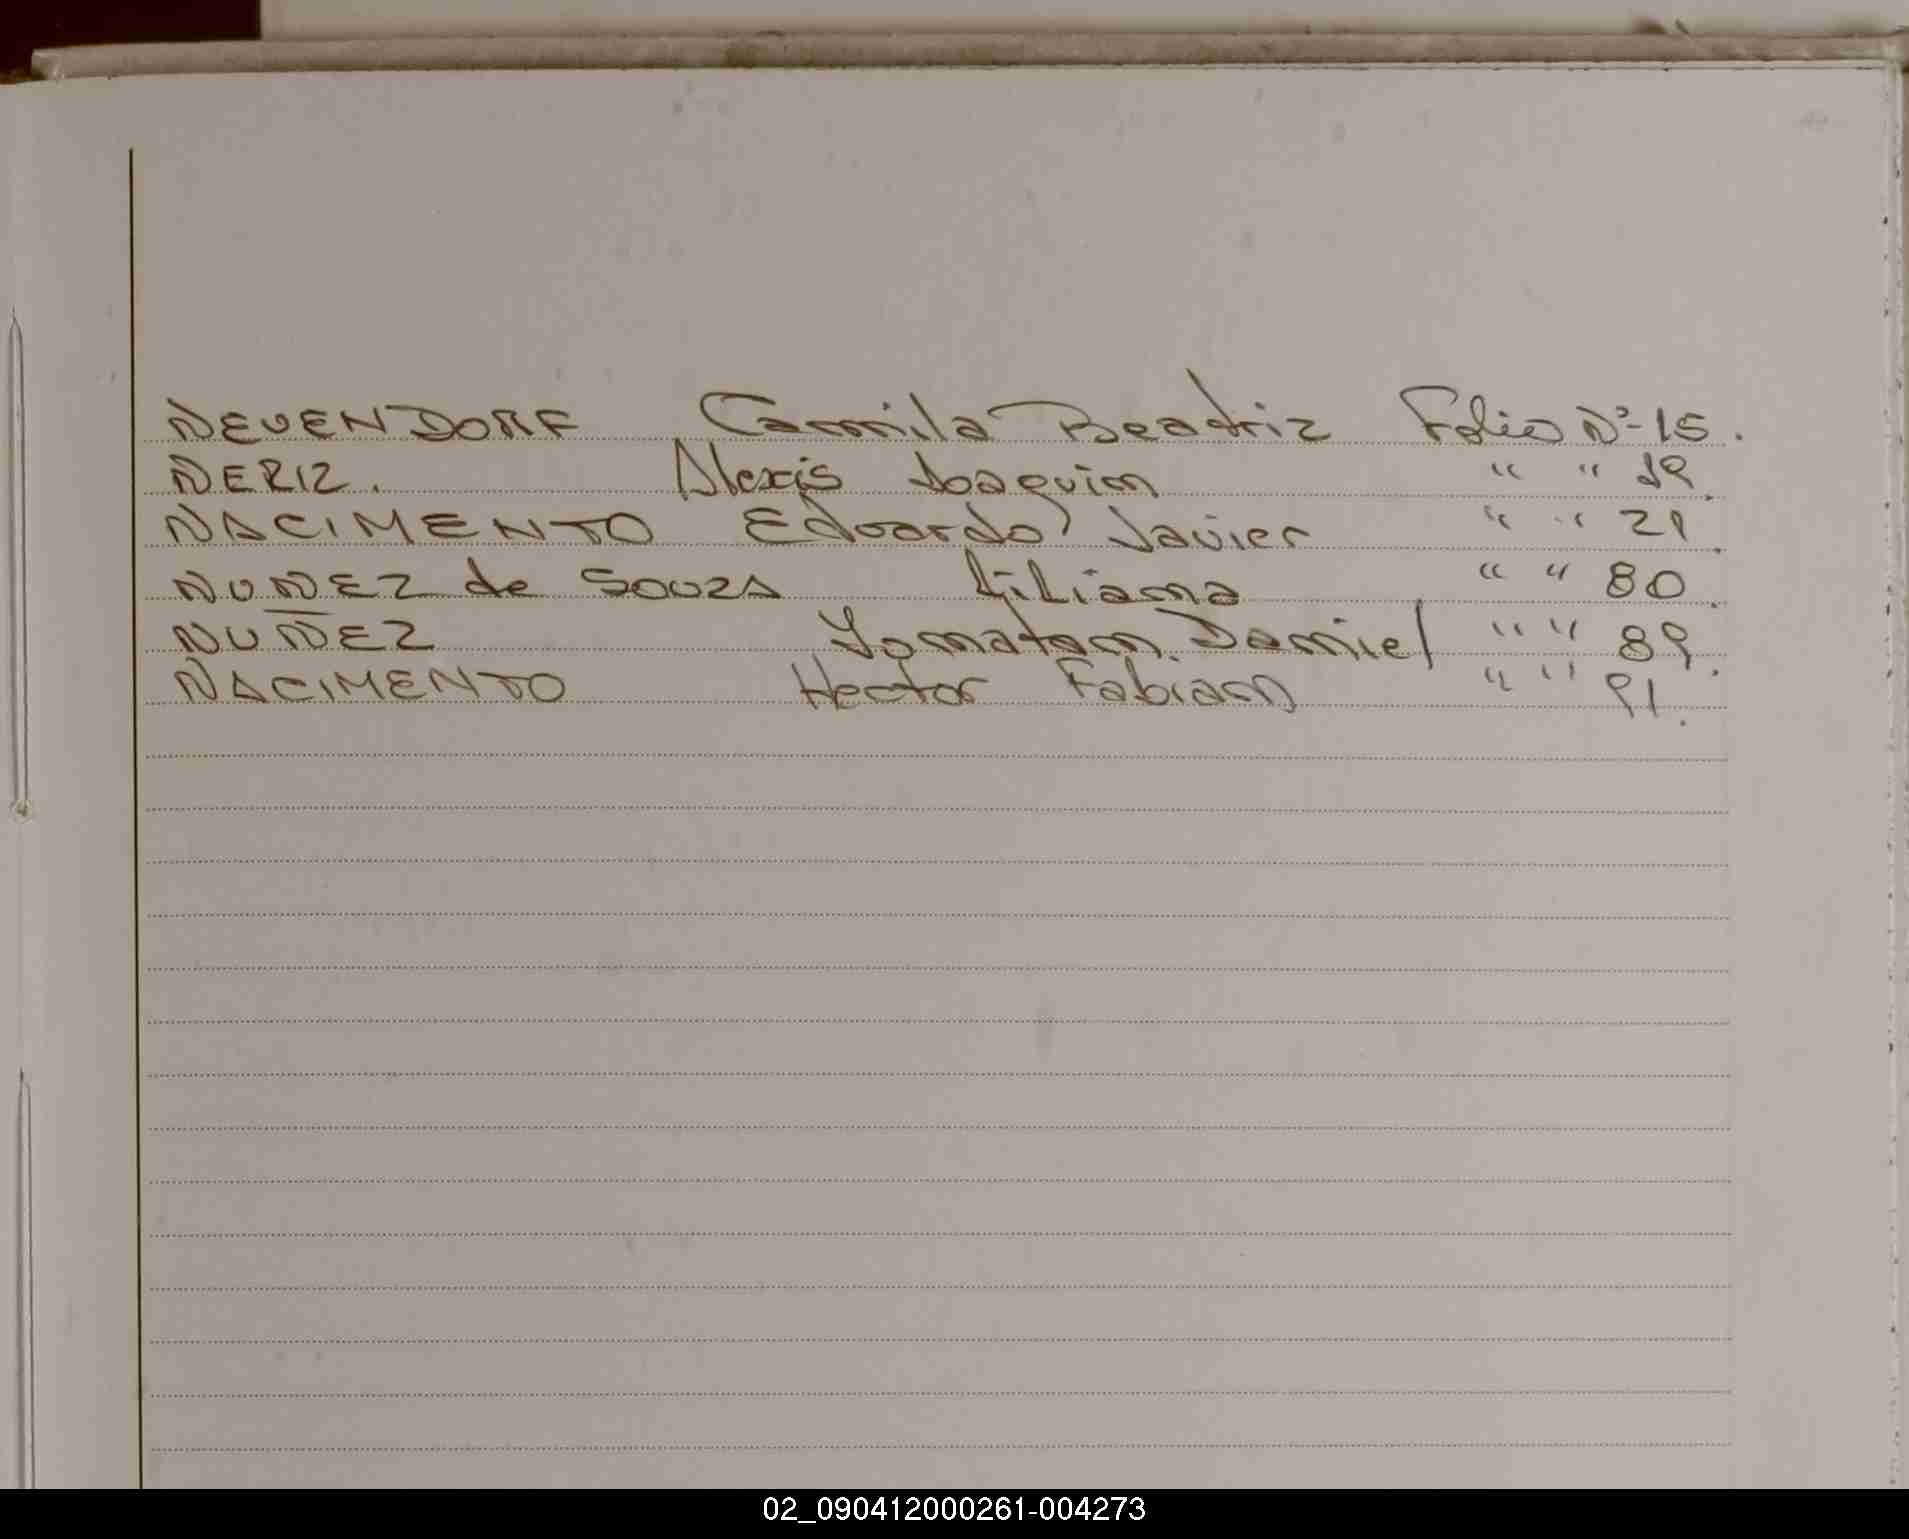 NEVENDORF Camila Beatriz Folio Nº 15.
NERIZ. Alexis Joaquin " " 19.
NACIMENTO Eduardo Javier " " 29.
NUÑEZ de SOUZA Liliana " " 80.
NUÑEZ Yonatan Daniel " " 89.
NACIMENTO Hector Fabian " " 91.
02_090412000261-004273